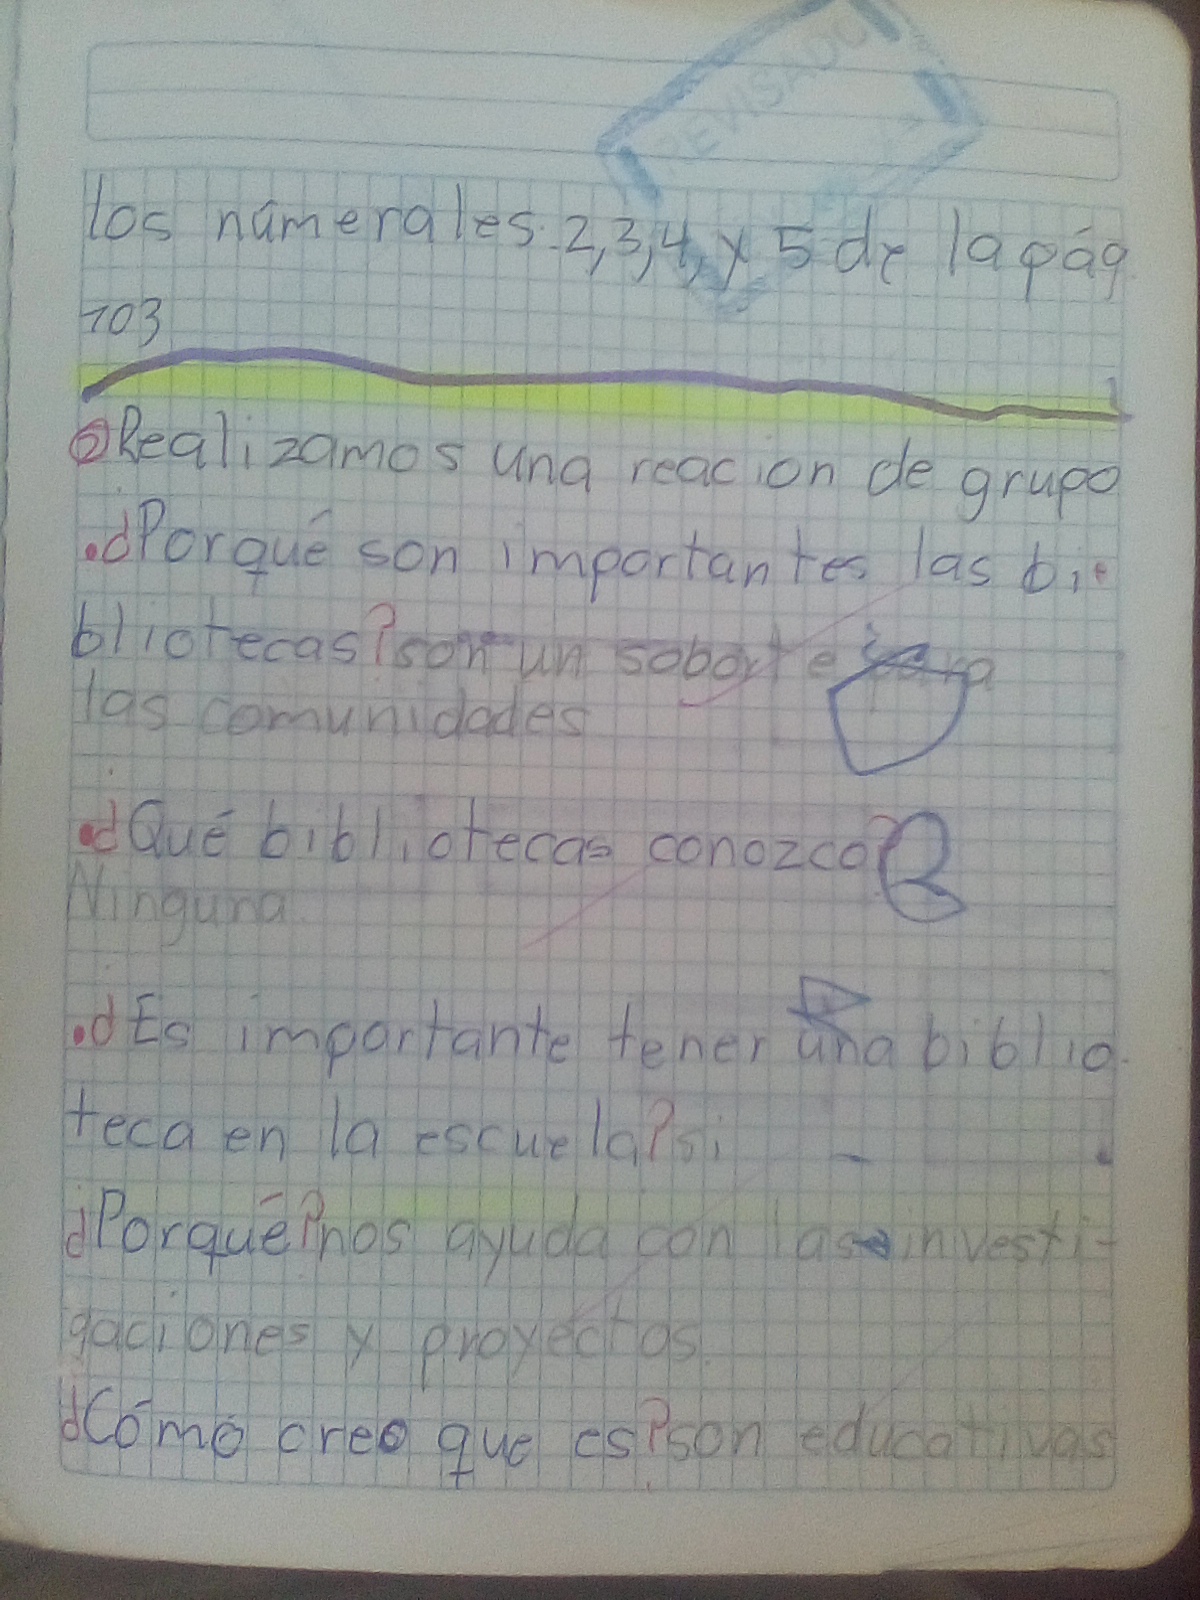 REVISADO
los númerales 2,3,4, y 5 de la pág.
103
②Realizamos una reacion de grupo
.¿Porqué son importantes las bi-
bliotecas? son un soborte para
las comunidades
.¿Qué bibliotecas conozco?
Ninguna
.¿Es importante tener una biblio-
teca en la escuela? si
¿Porqué? nos ayuda con las investi-
gaciones y proyectos.
¿Cómo creo que es? son educativas